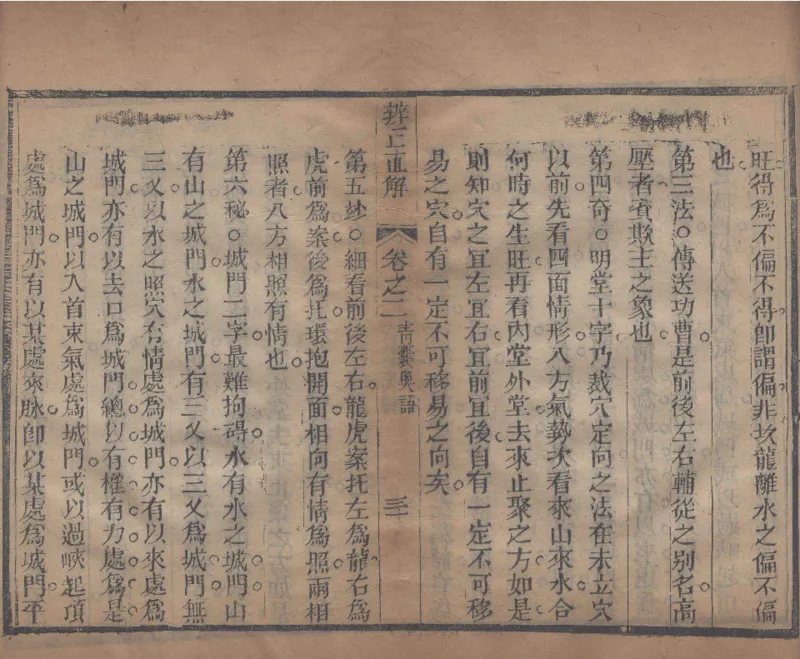 旺得爲不偏不得卽謂偏非坎龍離水之偏不偏
也
第三法○傳送功曹是前後左右輔從之别名高
壓者賓欺主之象也
第四奇○明堂十字乃裁穴定向之法在未立穴
以前先看四面情形八方氣勢次看來山來水合
何時之生旺再看內堂外堂去來止聚之方如是
則知穴之宜左宜右宜前宜後自有一定不可移
易之穴自有一定不可移易之向矣
辨正直解 卷之二 青囊奥語 三
第五妙○細看前後左右龍虎案托左爲龍右爲
虎前爲案後爲托環抱開面相向有情爲照兩相
照者八方相照有情也
第六秘○城門二字最難拘碍水有水之城門山
有山之城門水之城門有三义以三义爲城門無
三义以水之照穴有情處爲城門亦有以來處爲
城門亦有以去口爲城門總以有權有力處爲是
山之城門以入首束氣處爲城門或以過峽起頂
處爲城門亦有以某處來脉卽以某處爲城門平